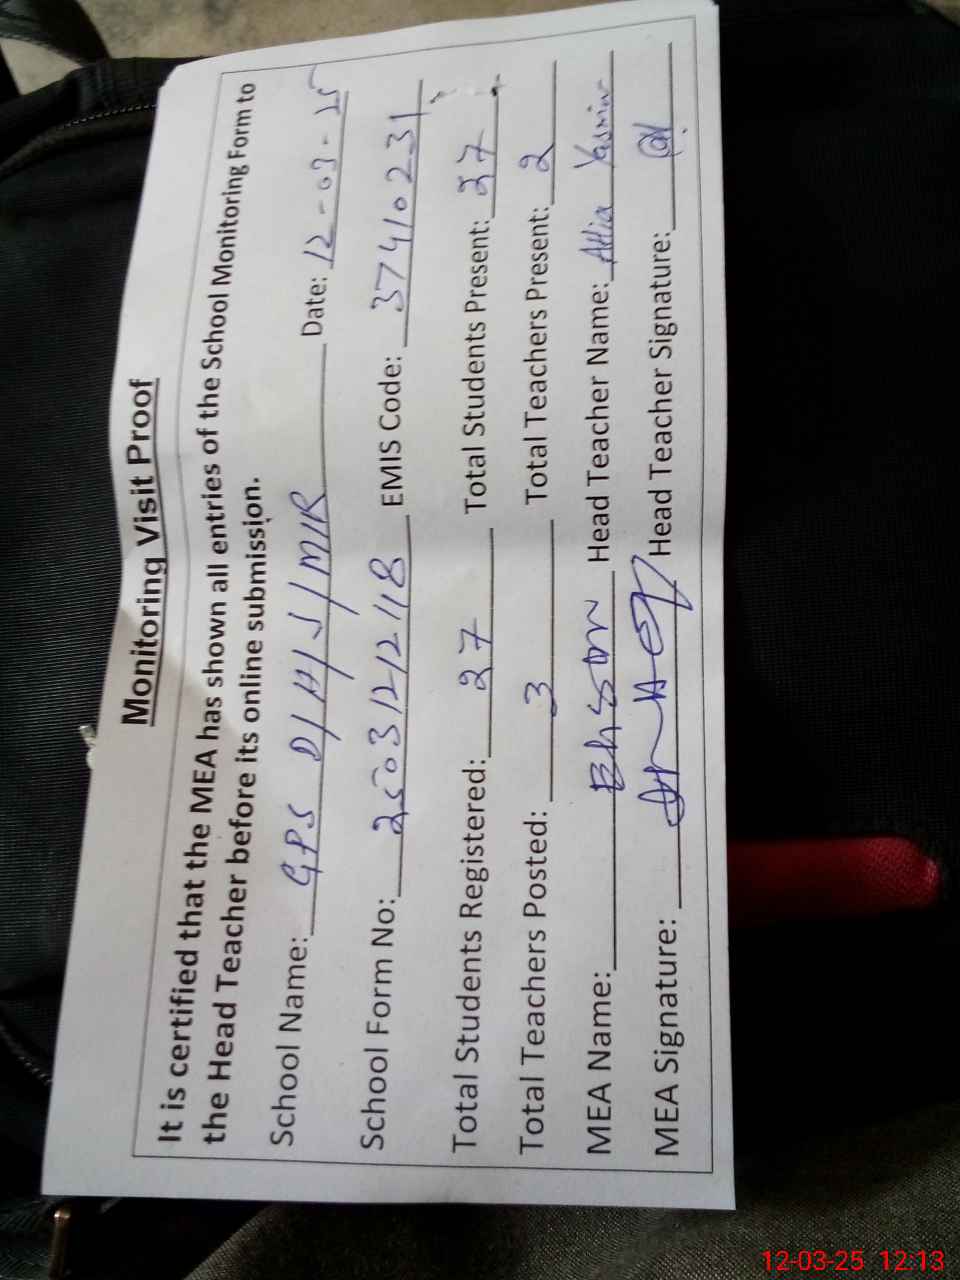 Monitoring Visit Proof
It is certified that the MEA has shown all entries of the School Monitoring Form to
the Head Teacher before its online submission.
School Name: GPS D/H/J/MIR Date: 12-03-25
School Form No: 2503121218 EMIS Code: 37410231
Total Students Registered: 27 Total Students Present: 27
Total Teachers Posted: 3 Total Teachers Present: 2
MEA Name: Head Teacher Name: Attia Yasmin
MEA Signature: Head Teacher Signature:
12-03-25 12:13